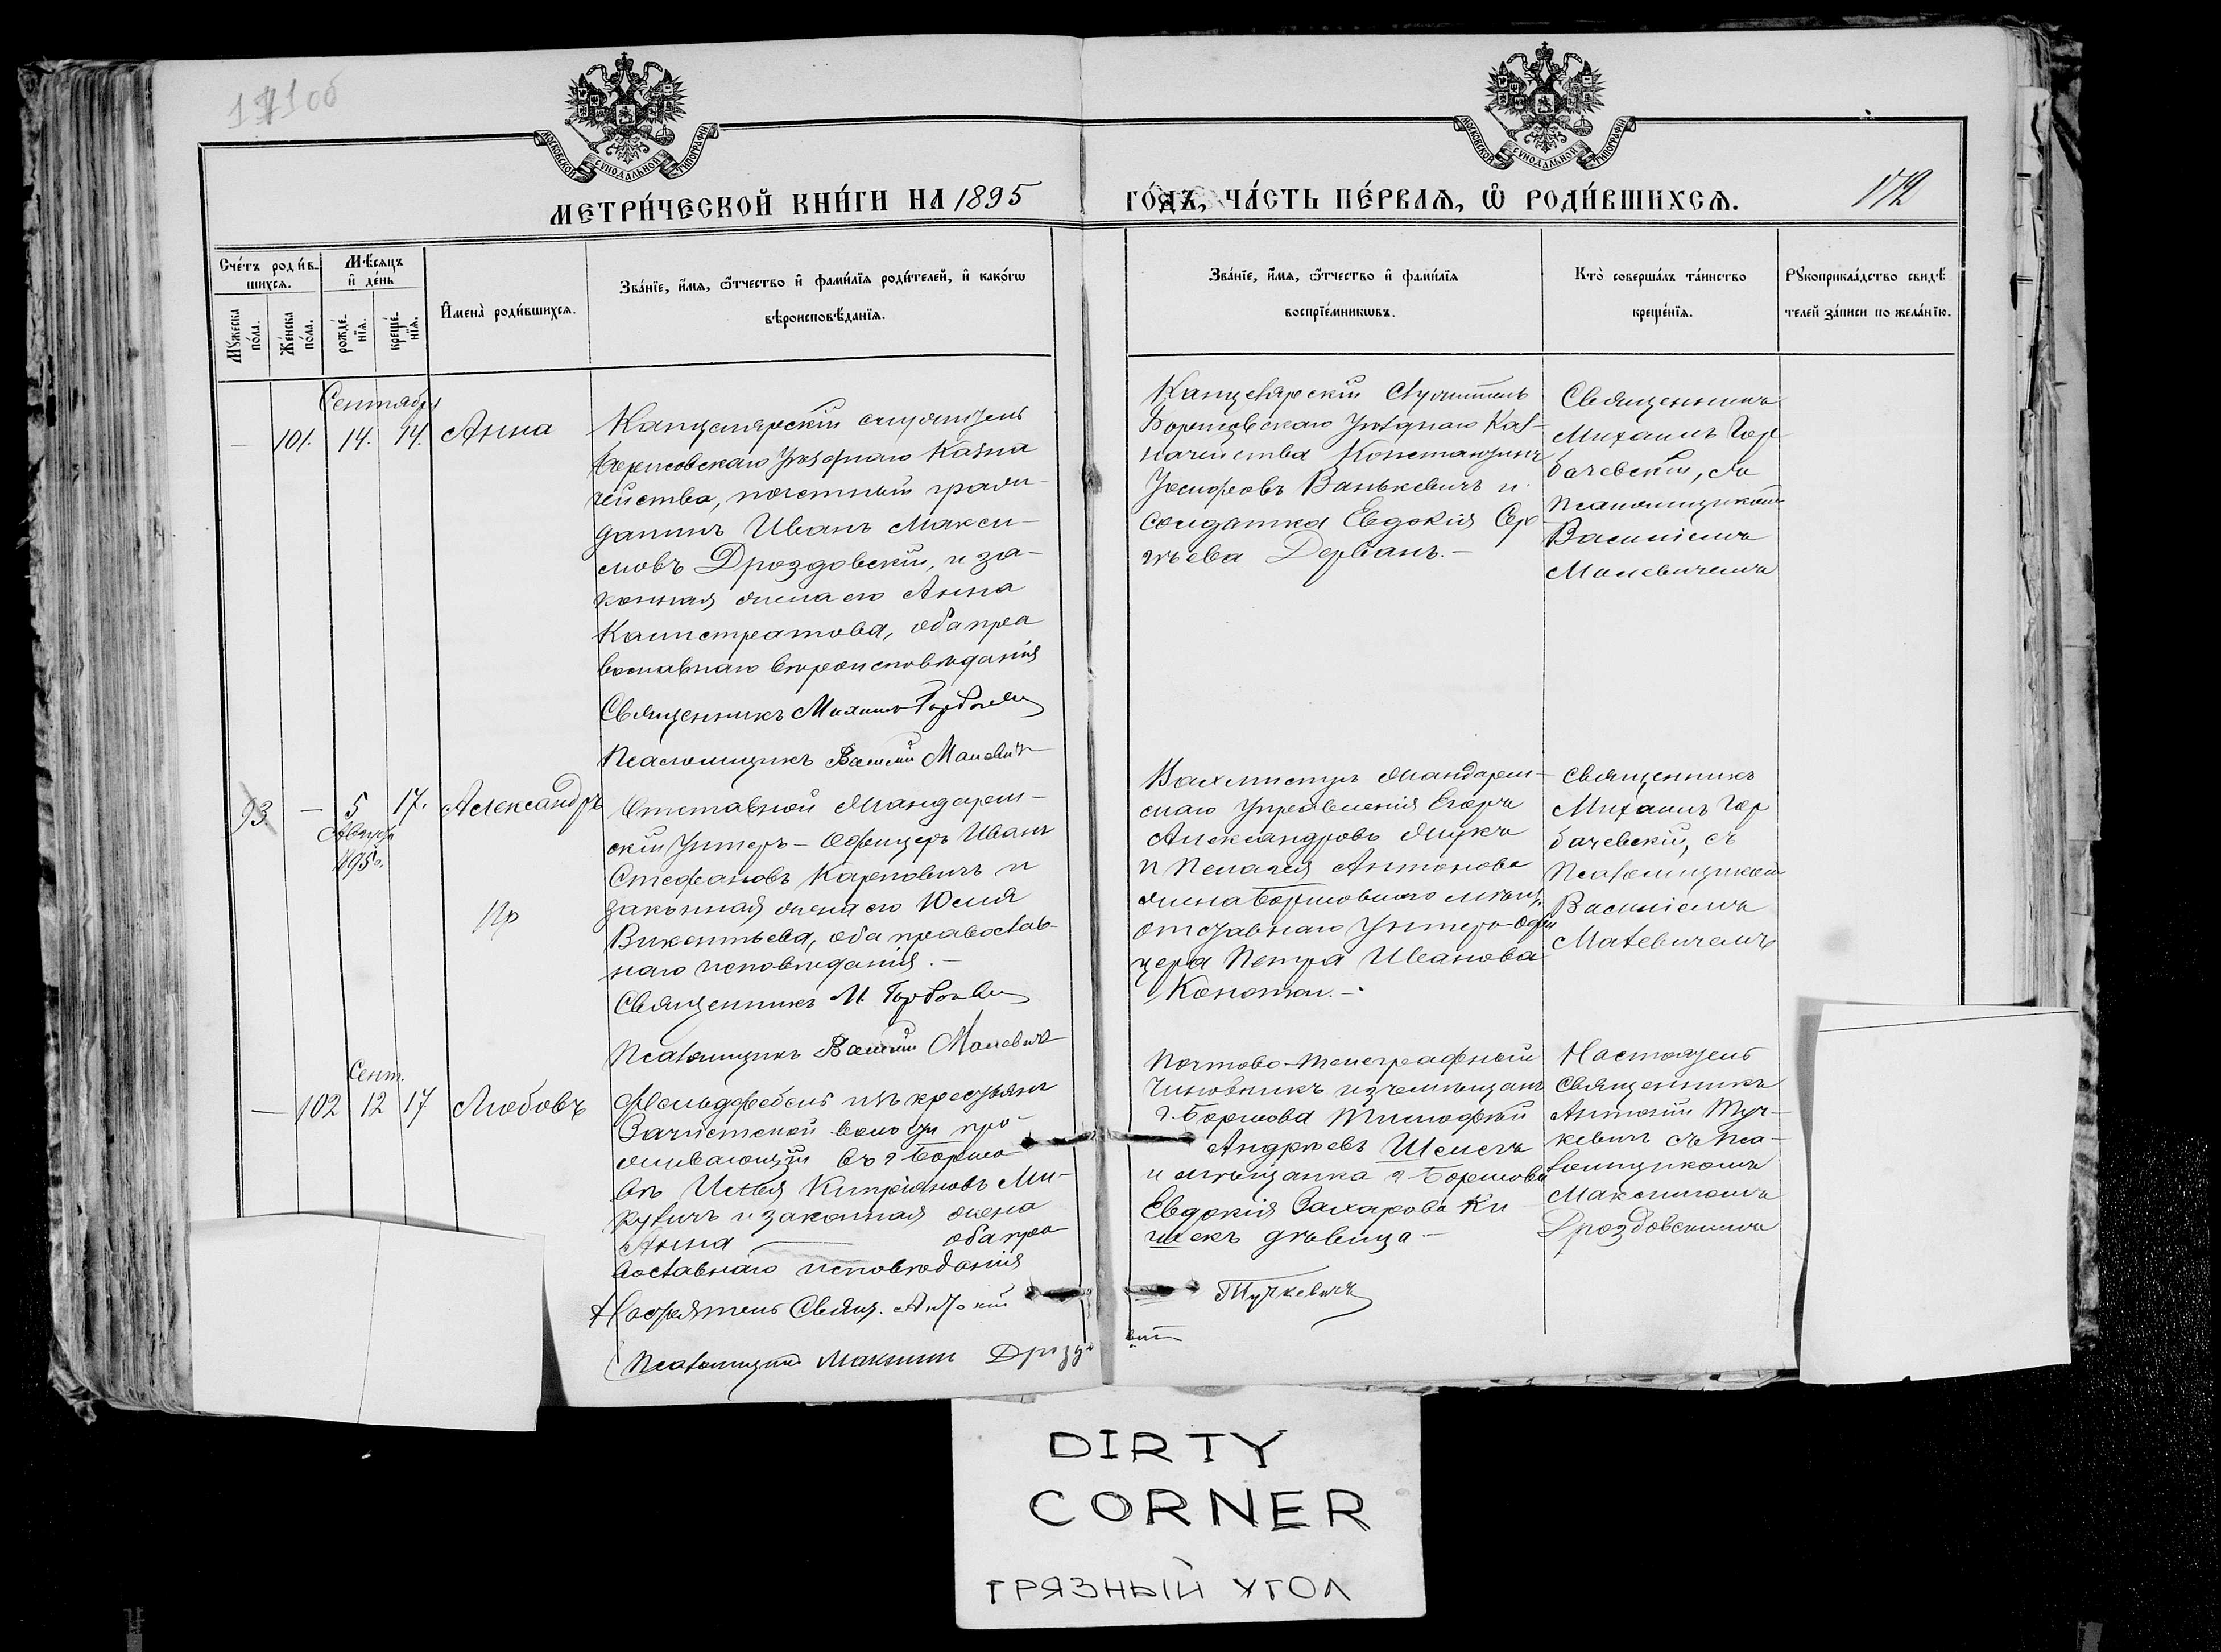 171об
МОСКОВСКОЙ СѴНОДАЛЬНОЙ ТИПОГРАФІИ
МОСКОВСКОЙ СѴНОДАЛЬНОЙ ТИПОГРАФІИ
МЕТРИ́ЧЕСКОЙ КНИ́ГИ НА 1895
ГО́ДЪ, ЧА́СТЬ ПЕ́РВАѦ, Ѡ҆ РОДИ́ВШИХСѦ.
172
Сче́тъ роди́в-
шихся.
Мꙋ́жеска по́ла.
Же́нска по́ла.
Мѣ́сяцъ и҆ де́нь
рожде́нїѧ.
креще́нїѧ.
И҆мена̀ роди́вшихсѧ.
Зва́нїе, и҆́мѧ, ѻ҆́тчество и҆ фами́лїѧ роди́телей, и҆ како́гѡ
вѣроисповѣ́данїѧ.
Зва́нїе, и҆́мѧ, ѻ҆́тчество и҆ фами́лїѧ
воспрїе́мникѡвъ.
Кто̀ соверша́лъ та́инство
креще́нїѧ.
Рꙋкоприкла́дство свидѣ́
телей за́писи по жела́нїю.
Сентября
— 101. 14. 14. Анна
Канцелярскій служитель
Борисовскаго Уѣзднаго Казна
чейства, почетный граж-
данинъ Иванъ Макси-
мовъ Дроздовскій, и за-
конная жена его Анна
Калистратова, оба пра
вославнаго вѣроисповѣданія
Священникъ Михаилъ Горбачевскій
Псаломщикъ Василій Малевичъ
Канцелярскій Служитель
Борисовскаго Уѣзднаго Каз-
начейства Константинъ
Іосифовъ Ванькевичъ и
солдатка Евдокія Сер
гѣева Дербанъ.—
Священникъ
Михаилъ Гор
бачевскій, съ
Псаломщикомъ
Василіемъ
Малевичемъ
93 — 5 17. Александръ
Августа
895 г.
Отставной Жандарм-
скій Унтеръ-Офицеръ Иванъ
Стефановъ Карповичъ и
законная жена его Юлія
Викентьева, оба православ-
наго исповѣданія.—
Священникъ М. Горбачевскій
Псаломщикъ Василій Малевичъ
Вахмистръ Жандарм-
скаго Управленія Егоръ
Александровъ Жукъ
и Пелагея Антонова
жена Борисовскаго мѣщ.
отставнаго Унтеръ-Офи
цера Петра Иванова
Священникъ
Михаилъ Гор
бачевскій, съ
Псаломщикомъ
Василіемъ
Малевичемъ
Сент.
— 102 12 17 Любовь
Фельдфебель изъ крестьянъ
Зачистской волости про
живающій въ г. Борисо
вѣ Илья Кипріановъ Ми-
куличъ и законная жена
Анна — оба пра
вославнаго исповѣданія
Настоятель Свящ. Антоній
Псаломщикъ Максимъ Дроздо
Почтово-телеграфный
чиновникъ изъ мѣщанъ
г. Борисова Тимофей
Андреевъ Шелегъ
и мѣщанка г. Борисова
Евдокія Захарова Ки
шекъ дѣвица —
Тучкевичъ
вскій
Настоятель
Священникъ
Антоній Туч-
кевичъ съ пса-
ломщикомъ
Максимомъ
Дроздовскимъ
DIRTY
CORNER
ГРЯЗНЫЙ УГОЛ